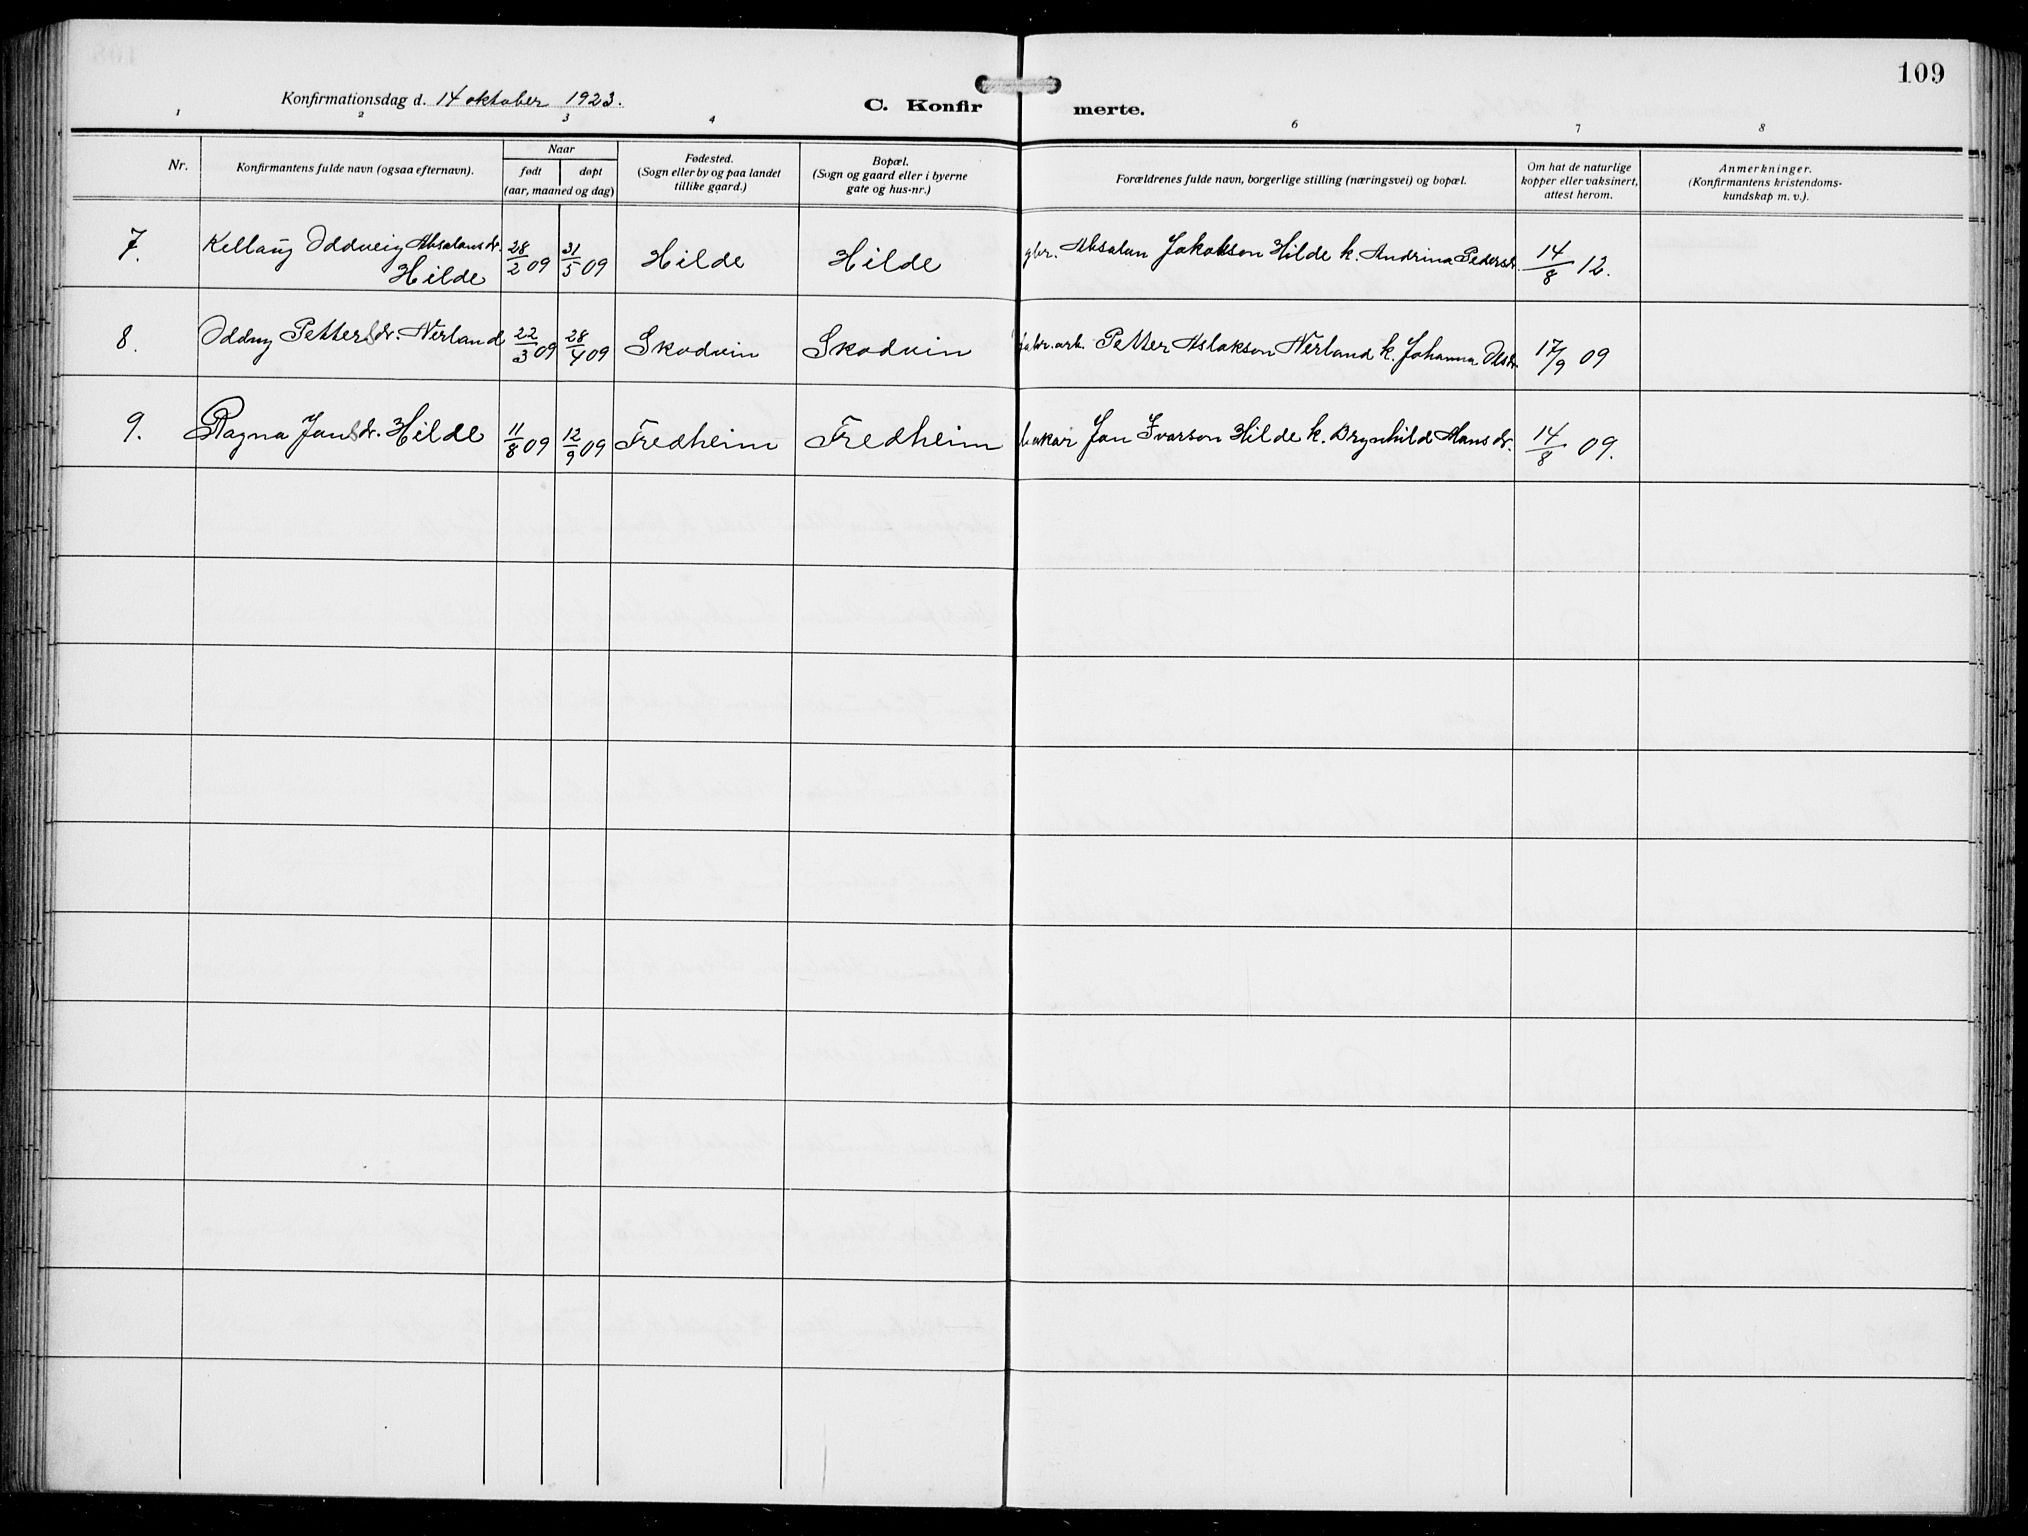 109
Konfirmationsdag d. 14 oktober 1923.
C. Konfir merte.
1 2 3 4 6 7 8
Nr.
Konfirmantens fulde navn (ogsaa efternavn).
Naar
født døpt
(aar, maaned og dag)
Fødested.
(Sogn eller by og paa landet
tillike gaard.)
Bopæl.
(Sogn og gaard eller i byerne
gate og hus-nr.)
Forældrenes fulde navn, borgerlige stilling (næringsvei) og bopæl.
Om hat de naturlige
kopper eller vaksinert,
attest herom.
Anmerkninger.
(Konfirmantens kristendoms-
kundskap m. v.).
7. Kellaug Oddveig Absalonsdr. Hilde 28/2 09 31/5 09 Hilde Hilde gbr. Absalon Jakobson Hilde k. Andrina Pedersdr. 14/8 12.
8. Oddny Pettersdr. Nerland 22/3 09 28/4 09 Skodvin Skodvin fabr.arb. Petter Aslakson Nerland k. Johanna Olsdr. 17/9 09
9. Ragna Jonsdr. Hilde 11/8 09 12/9 09 Fredheim Fredheim bakar Jon Ivarson Hilde k. Brynhild Hansdr. 14/8 09.